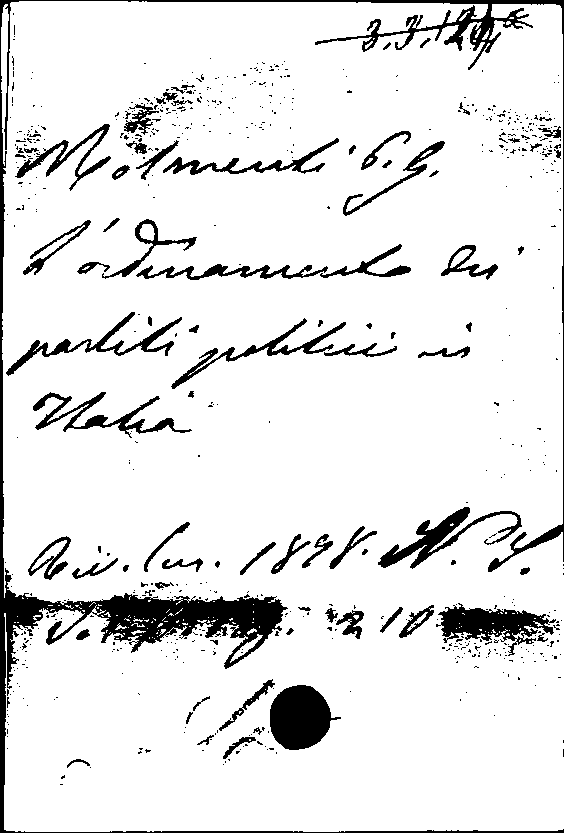 Molmenti P. G.
L'ordinamento dei
partiti politici in
Italia
Riv. Eur. 1878. N. S.
pag. 210